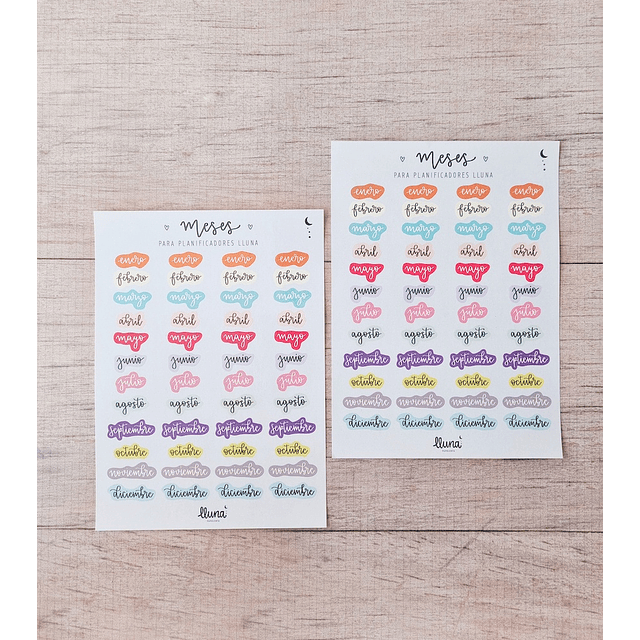 meses
PARA PLANIFICADORES LLUNA
enero enero enero enero
febrero febrero febrero febrero
marzo marzo marzo marzo
abril abril abril abril
mayo mayo mayo mayo
junio junio junio junio
julio julio julio julio
agosto agosto agosto agosto
septiembre septiembre septiembre septiembre
octubre octubre octubre octubre
noviembre noviembre noviembre noviembre
diciembre diciembre diciembre diciembre
lluna
meses
PARA PLANIFICADORES LLUNA
enero enero enero enero
febrero febrero febrero febrero
marzo marzo marzo marzo
abril abril abril abril
mayo mayo mayo mayo
junio junio junio junio
julio julio julio julio
agosto agosto agosto agosto
septiembre septiembre septiembre septiembre
octubre octubre octubre octubre
noviembre noviembre noviembre noviembre
diciembre diciembre diciembre diciembre
lluna